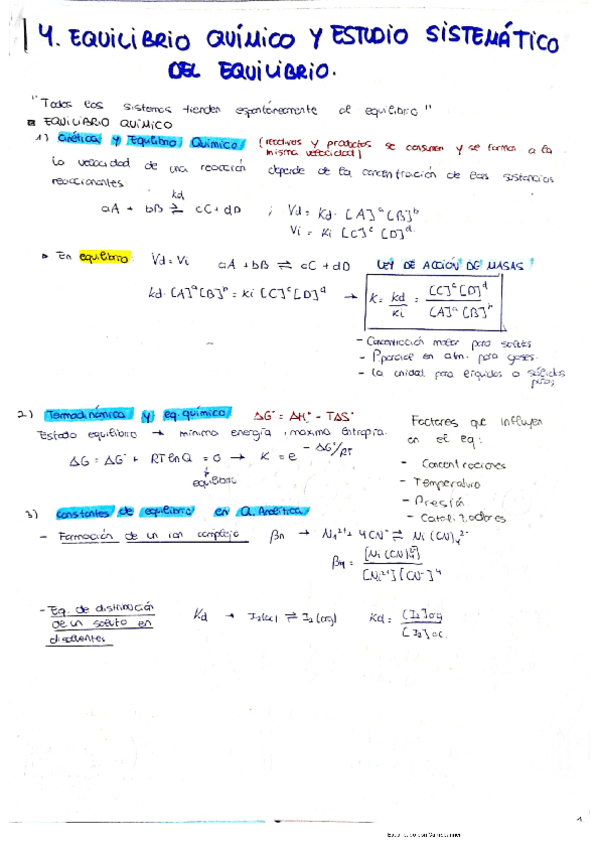 4. EQUILIBRIO QUÍMICO Y ESTUDIO SISTEMÁTICO
DEL EQUILIBRIO.
"Todos los sistemas tienden espontáneamente al equilibrio"
EQUILIBRIO QUÍMICO
1) Cinética y Equilibrio Químico (reactivos y productos se consumen y se forman a la
misma velocidad)
La velocidad de una reacción depende de la concentración de las sustancias
reaccionantes
kd
aA + bB ⇌ cC + dD ; Vd = Kd · [A]ᵃ [B]ᵇ
Vi = Ki [C]ᶜ [D]ᵈ
En equilibrio Vd = Vi aA + bB ⇌ cC + dD LEY DE ACCIÓN DE MASAS
kd · [A]ᵃ [B]ᵇ = ki [C]ᶜ [D]ᵈ → K = kd/ki = [C]ᶜ [D]ᵈ / [A]ᵃ [B]ᵇ
- Concentración molar para solutos
- Pparcial en atm. para gases.
- La unidad para líquidos o sólidos
puros
2) Termodinámica y eq. químico ΔG° = ΔH° - TΔS°
Estado equilibrio → mínima energía, máxima Entropía.
ΔG = ΔG° + RT lnQ = 0 → K = e^(-ΔG°/RT)
equilibrio
Factores que influyen
en el eq:
- Concentraciones
- Temperatura
- Presión
- Catalizadores
3) Constantes de equilibrio en Q. Analítica
- Formación de un ion complejo βn → Ni²⁺ + 4CN⁻ ⇌ Ni(CN)₄²⁻
β4 = [Ni(CN)₄²⁻] / [Ni²⁺][CN⁻]⁴
- Eq. de distribución
de un soluto en
disolventes
Kd → I₂(ac) ⇌ I₂(org) Kd = [I₂]org / [I₂]ac.